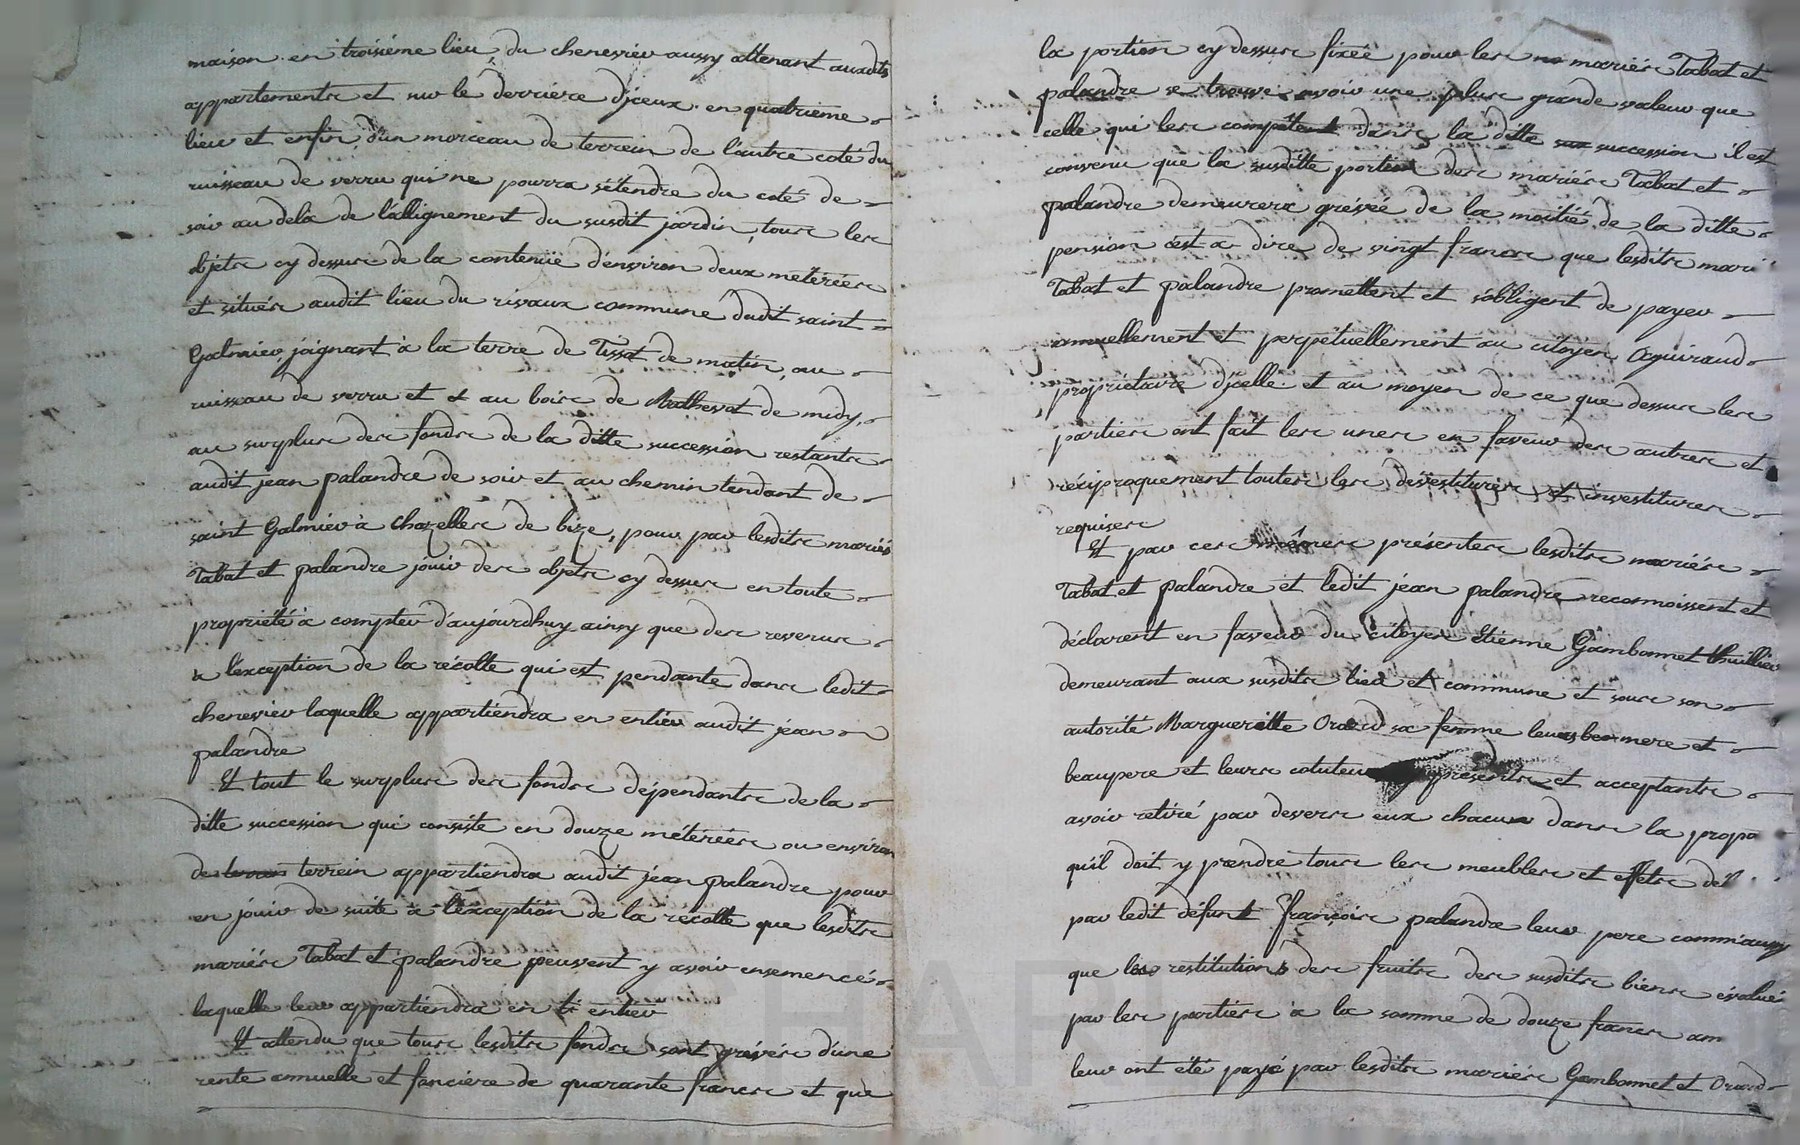 maison en troisiéme lieu, du chenevier aussy attenant auxdits
appartements et sur le derriere d'jceux en quatrieme
lieu et enfin d'un morceau de terrein de l'autre coté du
ruisseau de verru qui ne pourra s'étendre du coté de
soir au dela de l'allignement du susdit jardin, tous les
objets cy dessus de la contenüe d'environ deux metérées
et situés audit lieu du rivaux commune dudit saint
Galmier, joignant à la terre de Tissot de matin, au
ruisseau de verru et au bois de Mathevot de midy,
au surplus des fonds de la ditte succession restants
audit jean palandre de soir et au chemin tendant de
saint Galmier à chazelles de bize, pour par lesdits mariés
Tabat et palandre jouir des objets cy dessus en toute
propriété a compter d'aujourdhuy ainsy que des revenus
a l'exception de la récolte qui est pendante dans ledit
chenevier laquelle appartiendra en entier audit jean
palandre
Et tout le surplus des fonds dépendants de la
ditte succession qui consiste en douze métérées ou environ
de terrein appartiendra audit jean palandre pour
en jouir de suite a l'exception de la recolte que lesdits
mariés Tabat et palandre peuvent y avoir ensemencés
laquelle leur appartiendra en entier
Et attendu que tous lesdits fonds sont grévés d'une
rente annuelle et fonciere de quarante francs et que
la portion cy dessus fixée pour les mariés Tabat et
palandre se trouve avoir une plus grande valeur que
celle qui les compétent dans la ditte succession il est
convenu que la susditte portion des mariés Tabat et
palandre demeurera grévée de la moitié de la ditte
pension c'est a dire de vingt francs que lesdits marié
Tabat et palandre promettent et s'obligent de payer
annuellement et perpétuellement au citoyen Aguiraud
propriétaire d'jcelle. et au moyen de ce que dessus les
parties ont fait les unes en faveur des autres et
réciproquement toutes les dévestitures et investitures
requises
Et par ces mêmes présentes lesdits mariés
Tabat et palandre et ledit jean palandre reconnoissent et
déclarent en faveur du citoyen Etienne Gambonnet thuillier
demeurant aux susdits lieu et commune et sous son
autorité Margueritte Orard sa femme leurs mere et
beaupere et leurs cotuteurs présents et acceptants
avoir retiré par devers eux chacun dans la propo
qu'il doit y prendre tous les meubles et effets dél
par ledit défunt françois palandre leur pere comm'aussy
que les restitutions des fruits des susdits biens évalué
par les parties à la somme de douze francs am
leur ont été payé par lesdits mariés Gambonnet et Orard